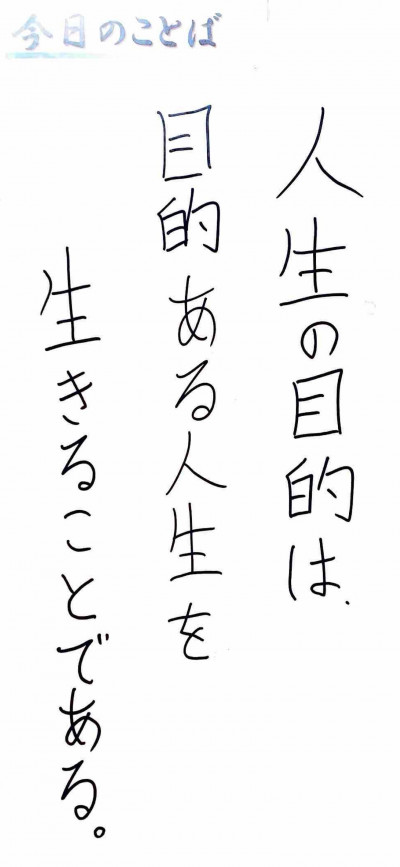 今日のことば
人生の目的は、
目的ある人生を
生きることである。